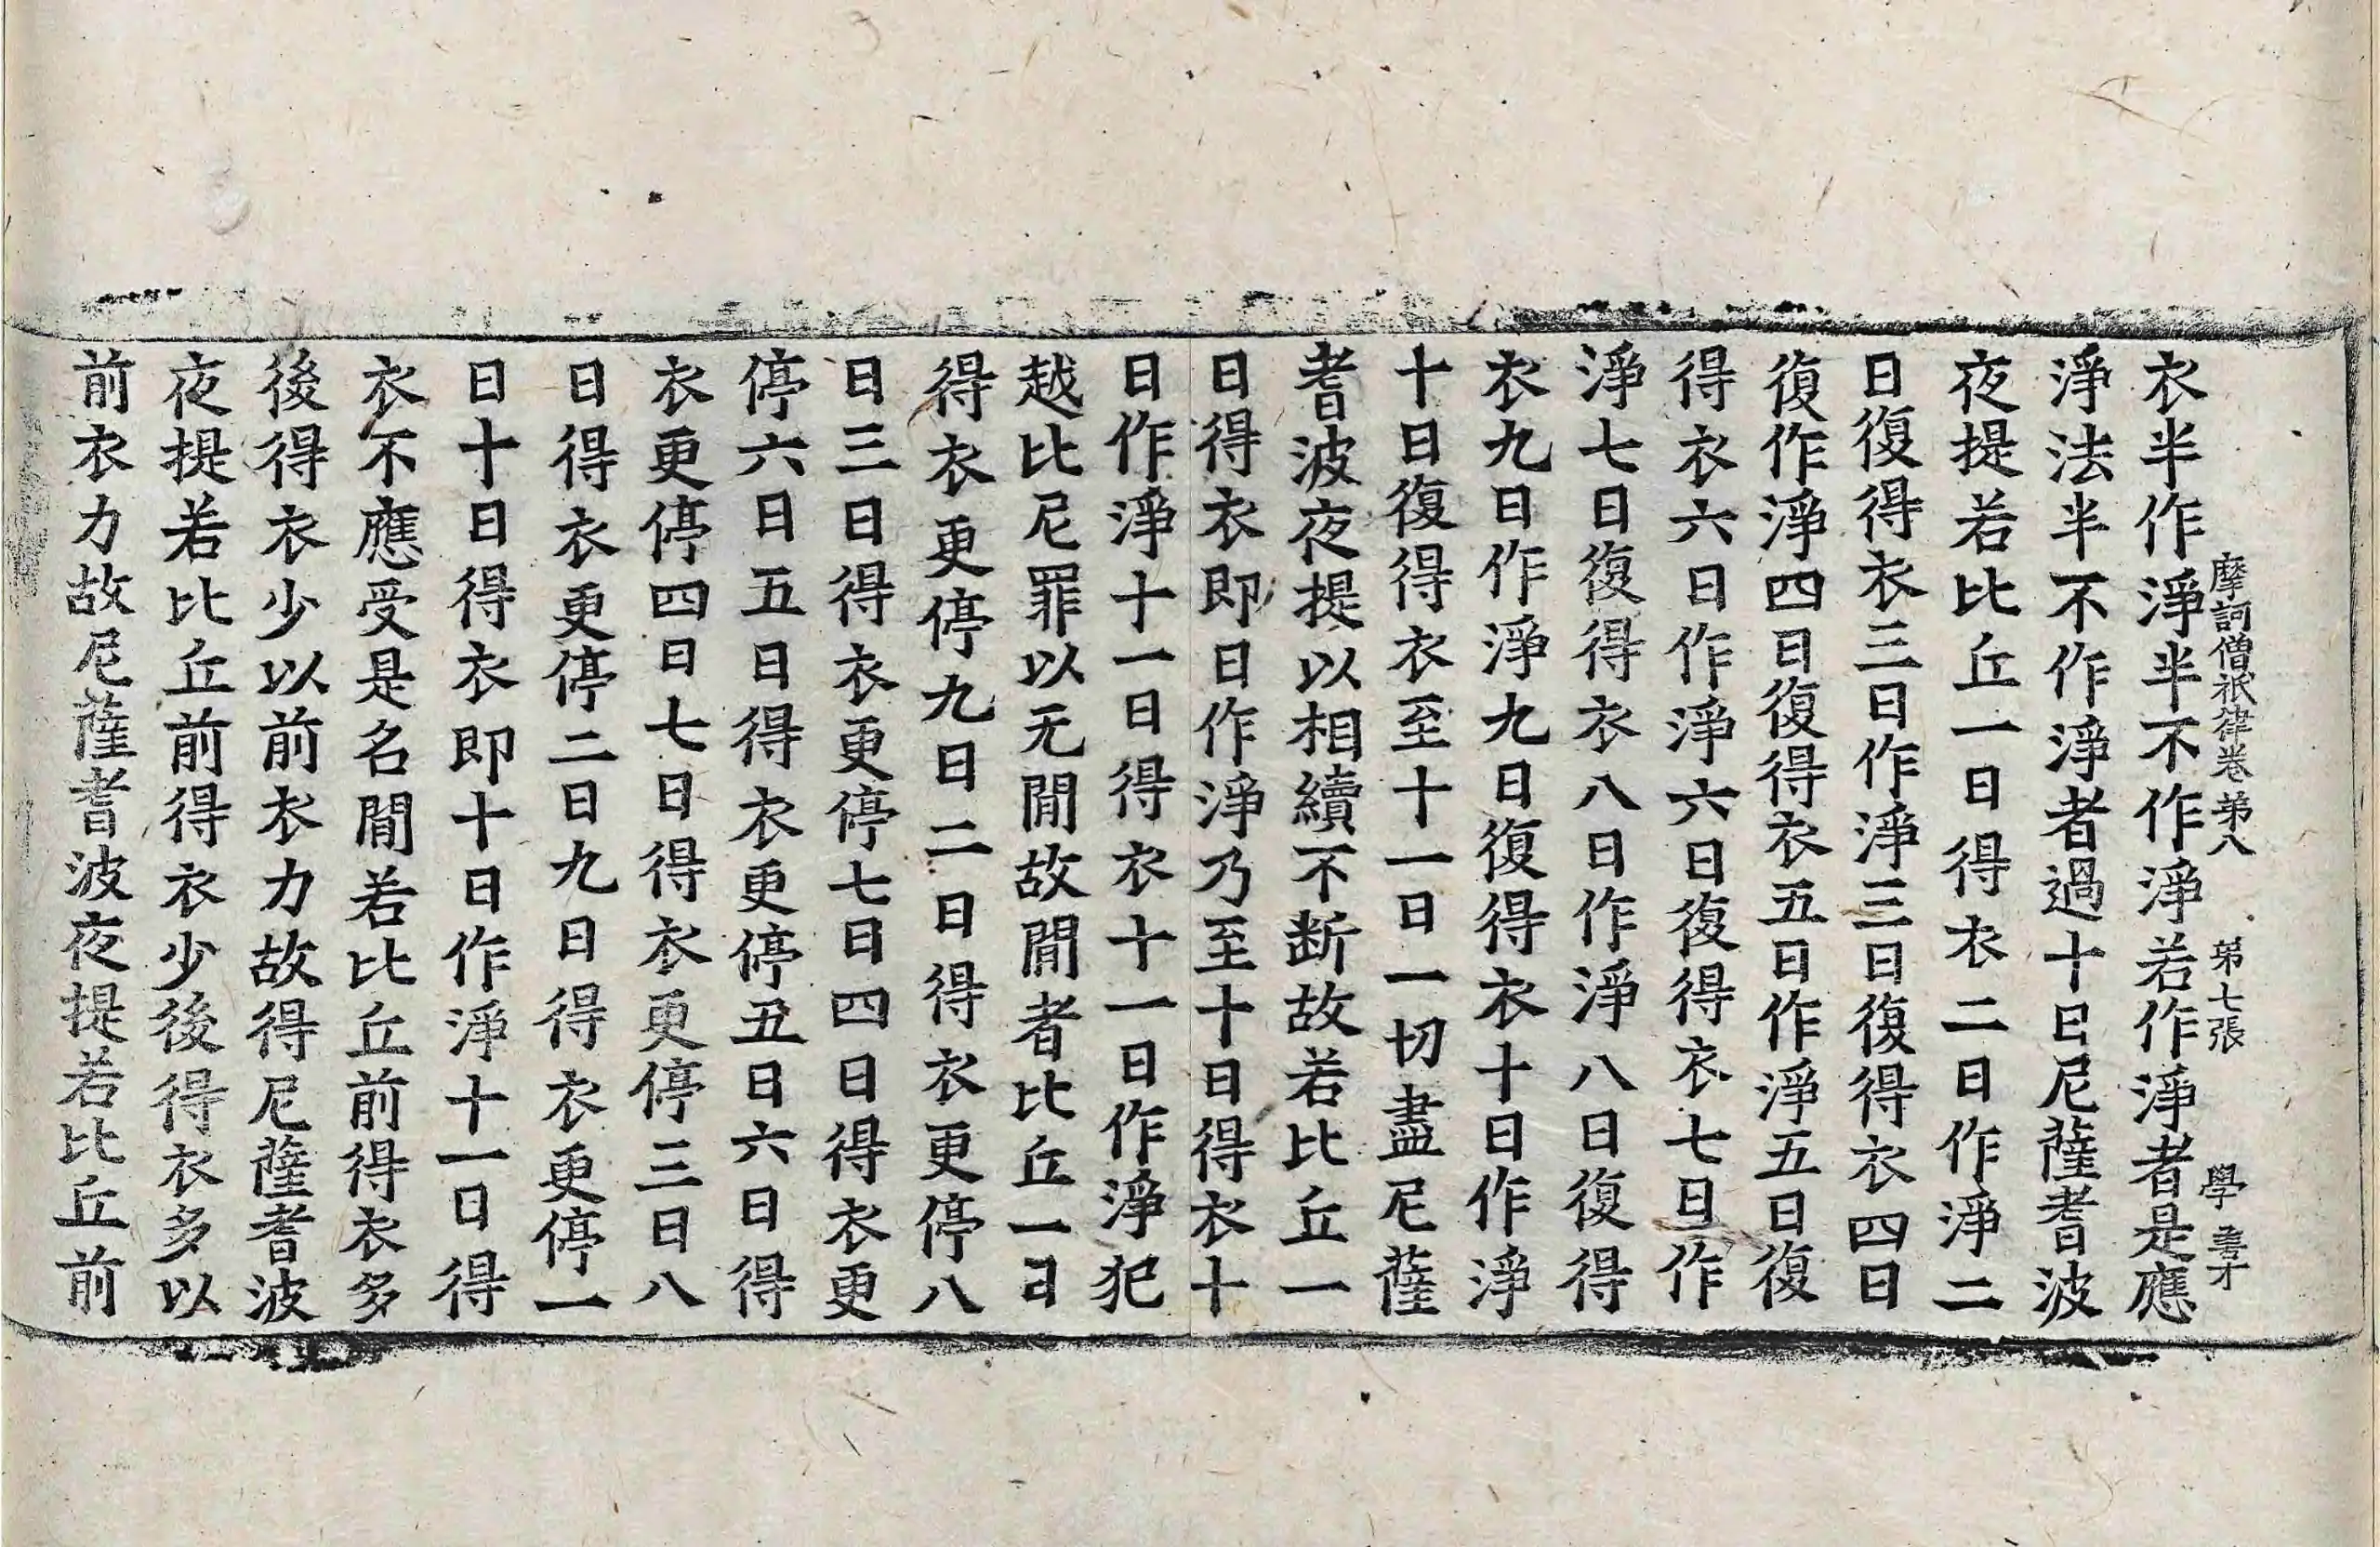 摩訶僧祇律卷第八　第七張　學
衣半作淨半不作淨若作淨者是應
淨法半不作淨者過十日尼薩耆波
夜提若比丘一日得衣二日作淨二
日復得衣三日作淨三日復得衣四日
復作淨四日復得衣五日作淨五日復
得衣六日作淨六日復得衣七日作
淨七日復得衣八日作淨八日復得
衣九日作淨九日復得衣十日作淨
十日復得衣至十一日一切盡尼薩
耆波夜提以相續不断故若比丘一
日得衣即日作淨乃至十日得衣十
日作淨十一日得衣十一日作淨犯
越比尼罪以无閒故閒者比丘一日
得衣更停九日二日得衣更停八
日三日得衣更停七日四日得衣更
停六日五日得衣更停五日六日得
衣更停四日七日得衣更停三日八
日得衣更停二日九日得衣更停一
日十日得衣即十日作淨十一日得
衣不應受是名閒若比丘前得衣多
後得衣少以前衣力故得尼薩耆波
夜提若比丘前得衣少後得衣多以
前衣力故尼薩耆波夜提若比丘前